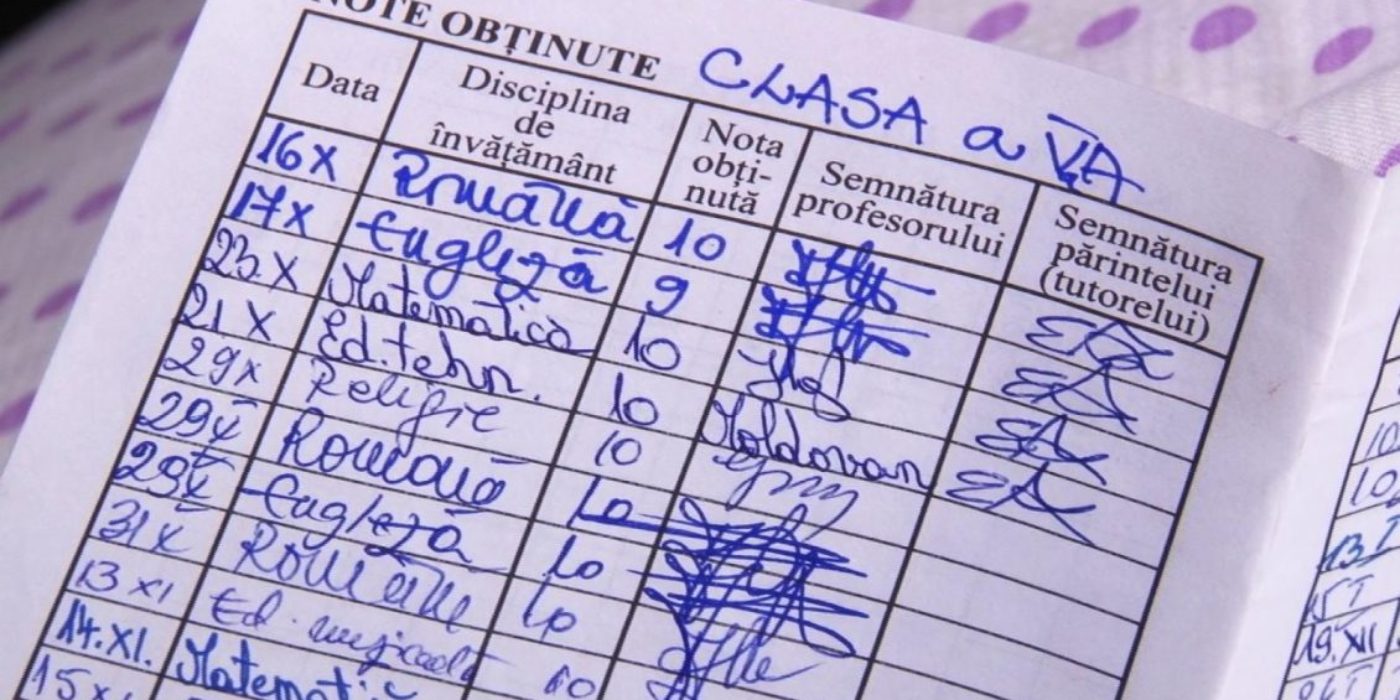 NOTE OBȚINUTE CLASA a VA
Data Disciplina de învățământ Nota obți-nută Semnătura profesorului Semnătura părintelui (tutorelui)
16 X Română 10
17 X Engleză 9
23. X Matematica 10
21 X Ed. tehn. 10 Moldovan
29 X Religie 10
29 X Română 10
29 X Engleză 10
31 X Română 10
13 XI Ed. muzicală 10
14. XI. Matematică
15 XI
10
10
13
19. XII